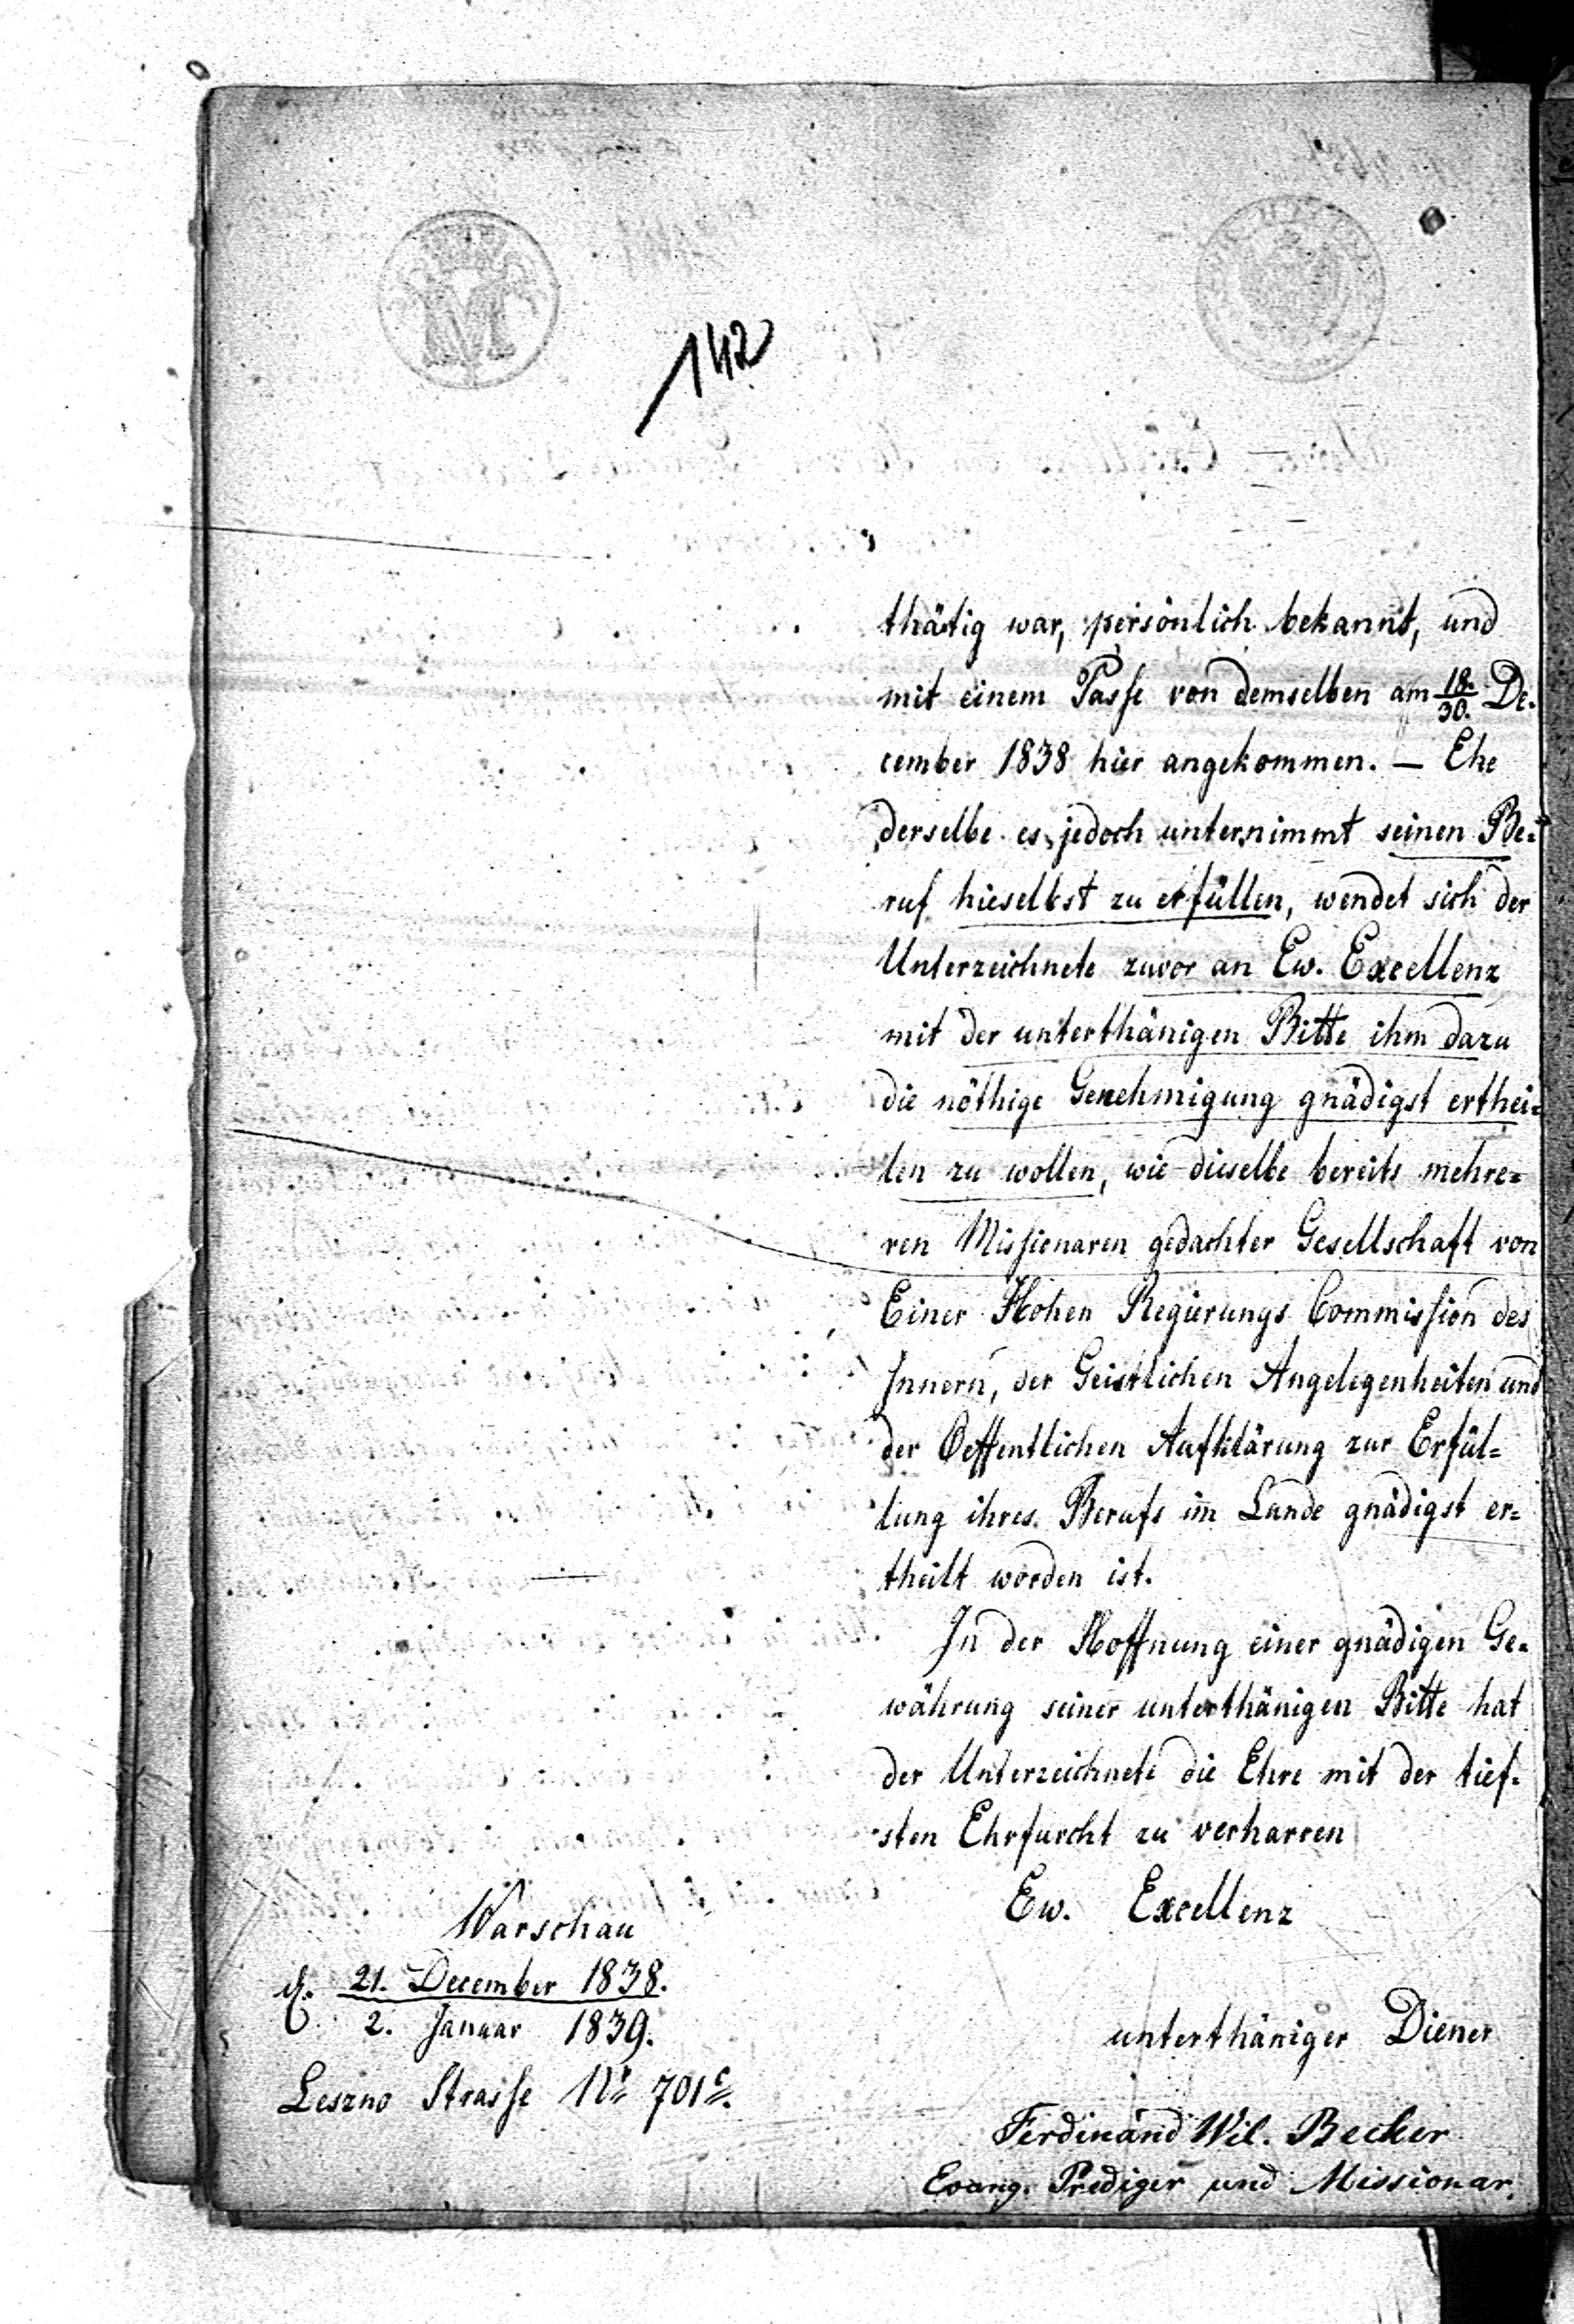 142
thätig war, persönlich bekannt, und
mit einem Passe von demselben am 18./30. De-
cember 1838 hier angekommen. — Ehe
derselbe es jedoch unternimmt seinen Be-
ruf hieselbst zu erfüllen, wendet sich der
Unterzeichnete zuvor an Ew. Excellenz
mit der unterthänigen Bitte ihm dazu
die nöthige Genehmigung gnädigst erthei-
len zu wollen, wie dieselbe bereits mehre-
ren Missionaren gedachter Gesellschaft von
Einer Hohen Regierungs Commission des
Innern, der Geistlichen Angelegenheiten und
der Oeffentlichen Aufklärung zur Erfül-
lung ihres Berufs im Lande gnädigst er-
theilt worden ist.
In der Hoffnung einer gnädigen Ge-
währung seiner unterthänigen Bitte hat
der Unterzeichnete die Ehre mit der tief-
sten Ehrfurcht zu verharren
Ew. Excellenz
Warschau
d. 21. December 1838.
2. Januar 1839.
Leszno Strasse No 701c.
unterthäniger Diener
Ferdinand Wil. Becker
Evang. Prediger und Missionar.